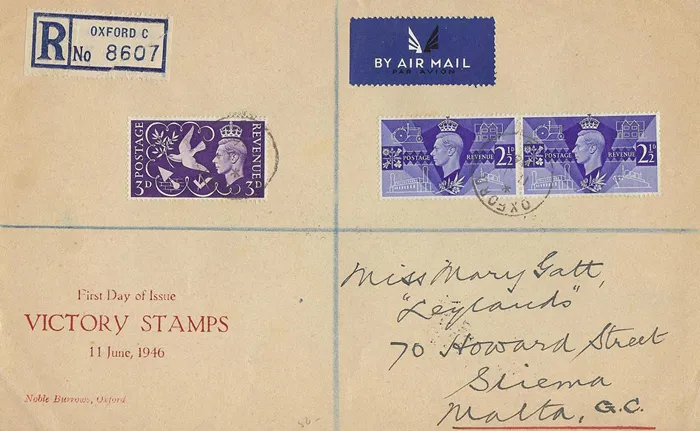 R
OXFORD C
No 8607
BY AIR MAIL
PAR AVION
POSTAGE
REVENUE
3D
3D
POSTAGE
REVENUE
2½D
POSTAGE
REVENUE
2½D
OXFORD
First Day of Issue
VICTORY STAMPS
11 June, 1946
Noble Burrows, Oxford
Miss Mary Gatt,
"Leylands"
70 Howard Street
Sliema
Malta, G.C.